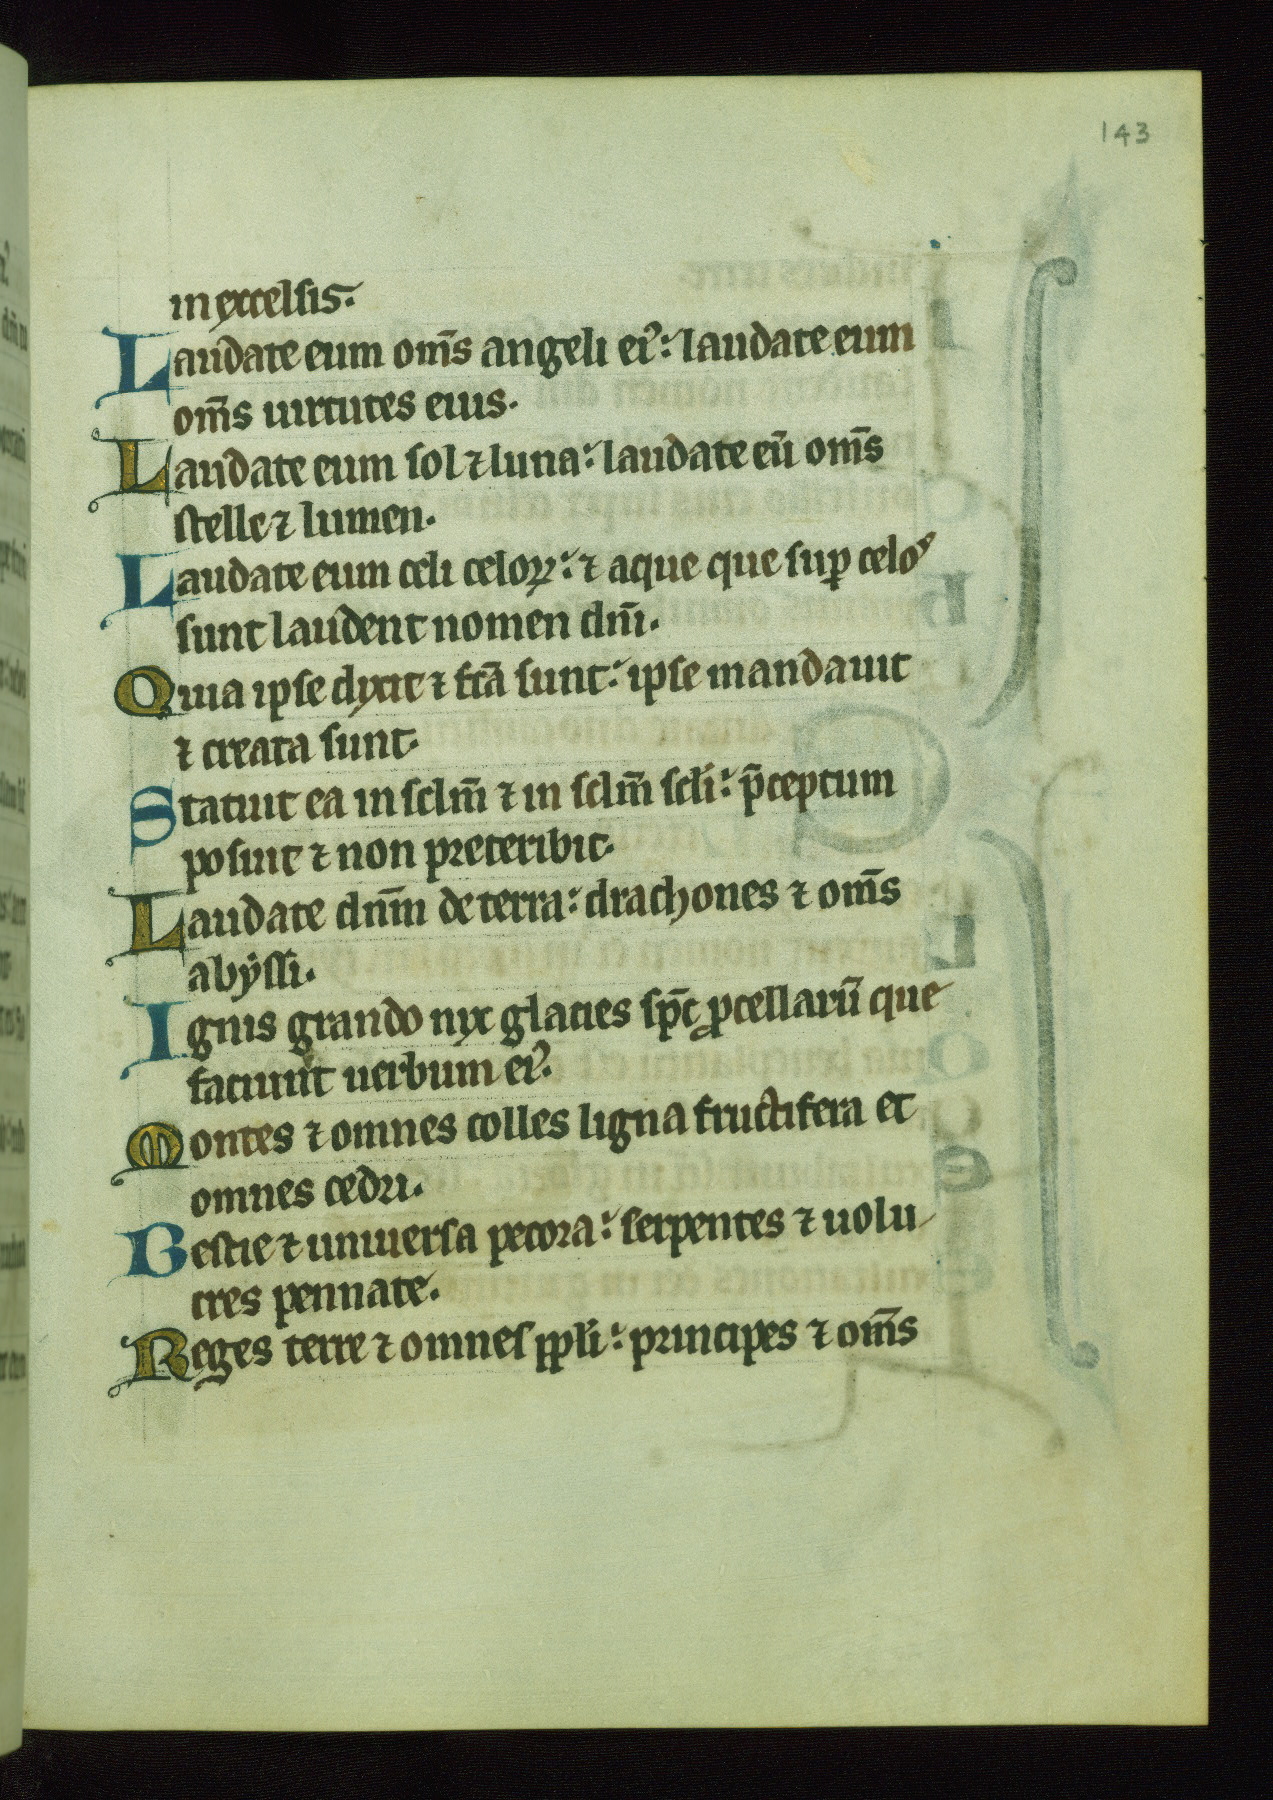 143
in excelsis.
Laudate eum om̄s angeli eiꝰ: laudate eum
om̄s uirtutes eius.
Laudate eum sol ⁊ luna: laudate eū om̄s
stelle ⁊ lumen.
Laudate eum celi celoꝝ: ⁊ aque que suꝑ celos
sunt laudent nomen dn̄i.
Quia ipse dixit ⁊ fc̄a sunt: ipse mandauit
⁊ creata sunt.
Statuit ea in sclm̄ ⁊ in sclm̄ scl̄i: p̄ceptum
posuit ⁊ non preteribit.
Laudate dn̄m de terra: drachones ⁊ om̄s
abyssi.
Ignis grando nix glacies sp̄c ꝓcellarū que
faciunt uerbum eiꝰ.
Montes ⁊ omnes colles ligna fructifera et
omnes cedri.
Bestie ⁊ uniuersa pecora: serpentes ⁊ uolu
cres pennate.
Reges terre ⁊ omnes ppl̄i: principes ⁊ om̄s